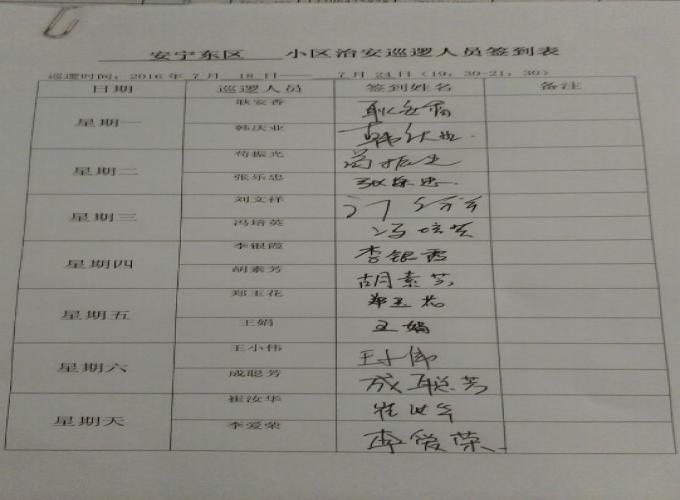 安宁东区 小区治安巡逻人员签到表
巡逻时间：2016年7月 18日 7月24日（19：30-21：30）
日期 巡逻人员 签到姓名 备注
星期一
耿安香 耿安香
韩庆业 韩庆业
星期二
苟振光 苟振光
张乐忠 张乐忠
星期三
刘文祥
冯培英 冯培英
星期四
李银霞 李银霞
胡素芳 胡素芳
星期五
郑玉花 郑玉花
王娟 王娟
星期六
王小伟 王小伟
成聪芳 成聪芳
星期天
崔汝华 崔汝华
李爱荣 李爱荣